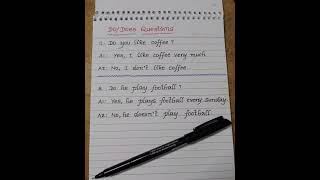 Do/Does Questions
Q. Do you like coffee?
A1: Yes, I like coffee very much
A2: No, I don't like coffee.
Q. Do he play football?
A1: Yes, he plays football every sunday
A2: No, he doesn't play football.